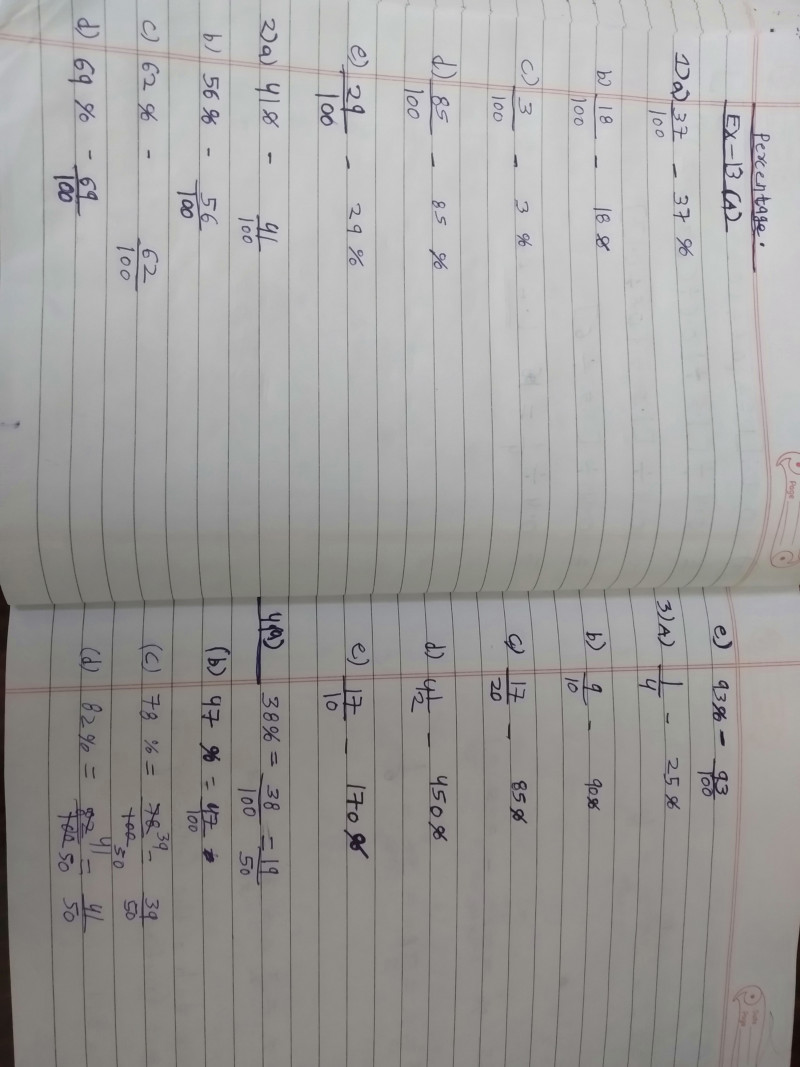 Percentage.
Ex-13 (A)
1) a) 37/100 - 37 %
b) 18/100 - 18 %
c) 3/100 - 3 %
d) 85/100 - 85 %
e) 29/100 - 29 %
2) a) 41% - 41/100
b) 56% - 56/100
c) 62% - 62/100
d) 69% - 69/100
Page
e) 93% - 93/100
3) A) 1/4 - 25%
b) 9/10 - 90%
c) 17/20 - 85%
d) 4 1/2 - 450%
e) 17/10 - 170%
4(A) 38% = 38/100 = 19/50
(b) 47 % = 47/100
(c) 78 % = 78 39/100 50 - 39/50
(d) 82% = 82 41/100 50 = 41/50
Page